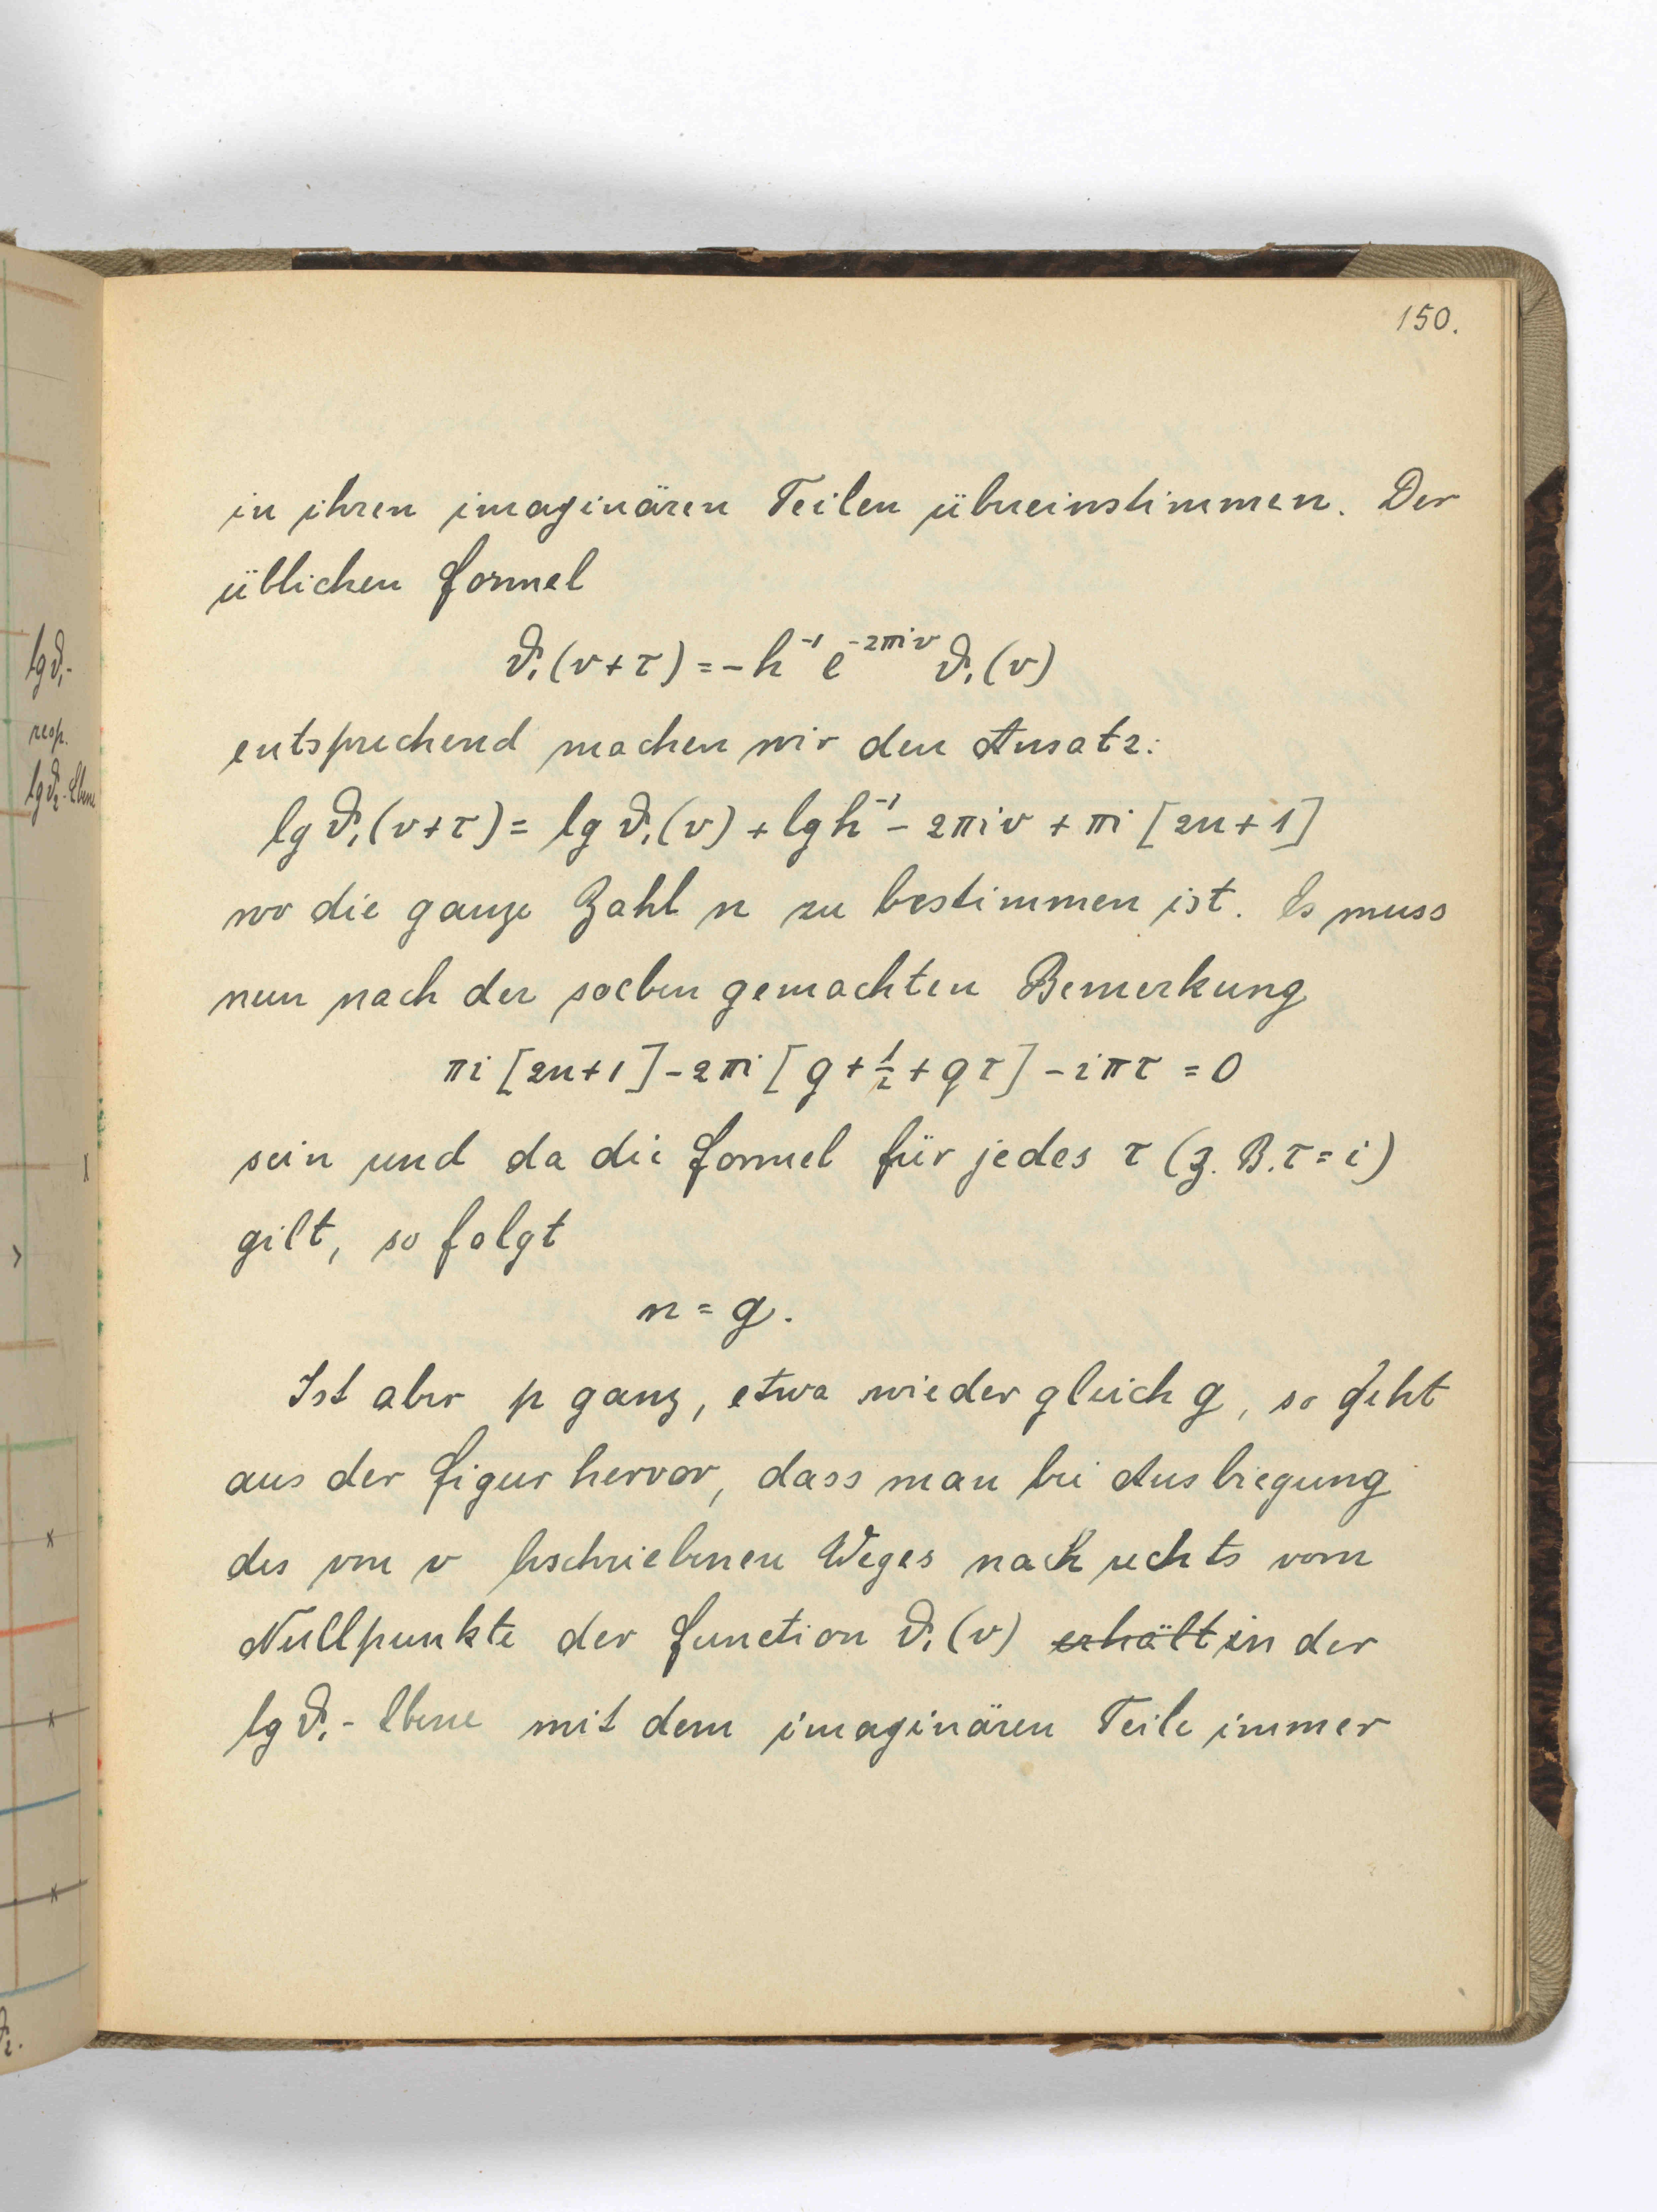 150.
in ihren imaginären Teilen übereinstimmen. Der
üblichen Formel
ϑ₁(v+τ) = -h⁻¹ e^{-2πiv} ϑ₁(v)
entsprechend machen wir den Ansatz:
lg ϑ₁(v+τ) = lg ϑ₁(v) + lg h⁻¹ - 2πiv + πi [2n+1]
wo die ganze Zahl n zu bestimmen ist. Es muss
nun nach der soeben gemachten Bemerkung
πi [2n+1] - 2πi [g + 1/2 + qτ] - iπτ = 0
sein und da die Formel für jedes τ (z. B. τ = i)
gilt, so folgt
n = g.
Ist aber p ganz, etwa wieder gleich g, so geht
aus der Figur hervor, dass man bei Ausbiegung
des von v beschriebenen Weges nach rechts vom
Nullpunkte der Function ϑ₁(v) erhält in der
lg ϑ₁ - Ebene mit dem imaginären Teile immer
lg ϑ₁-
resp.
lg ϑ₂-Ebene
ϑ₂.